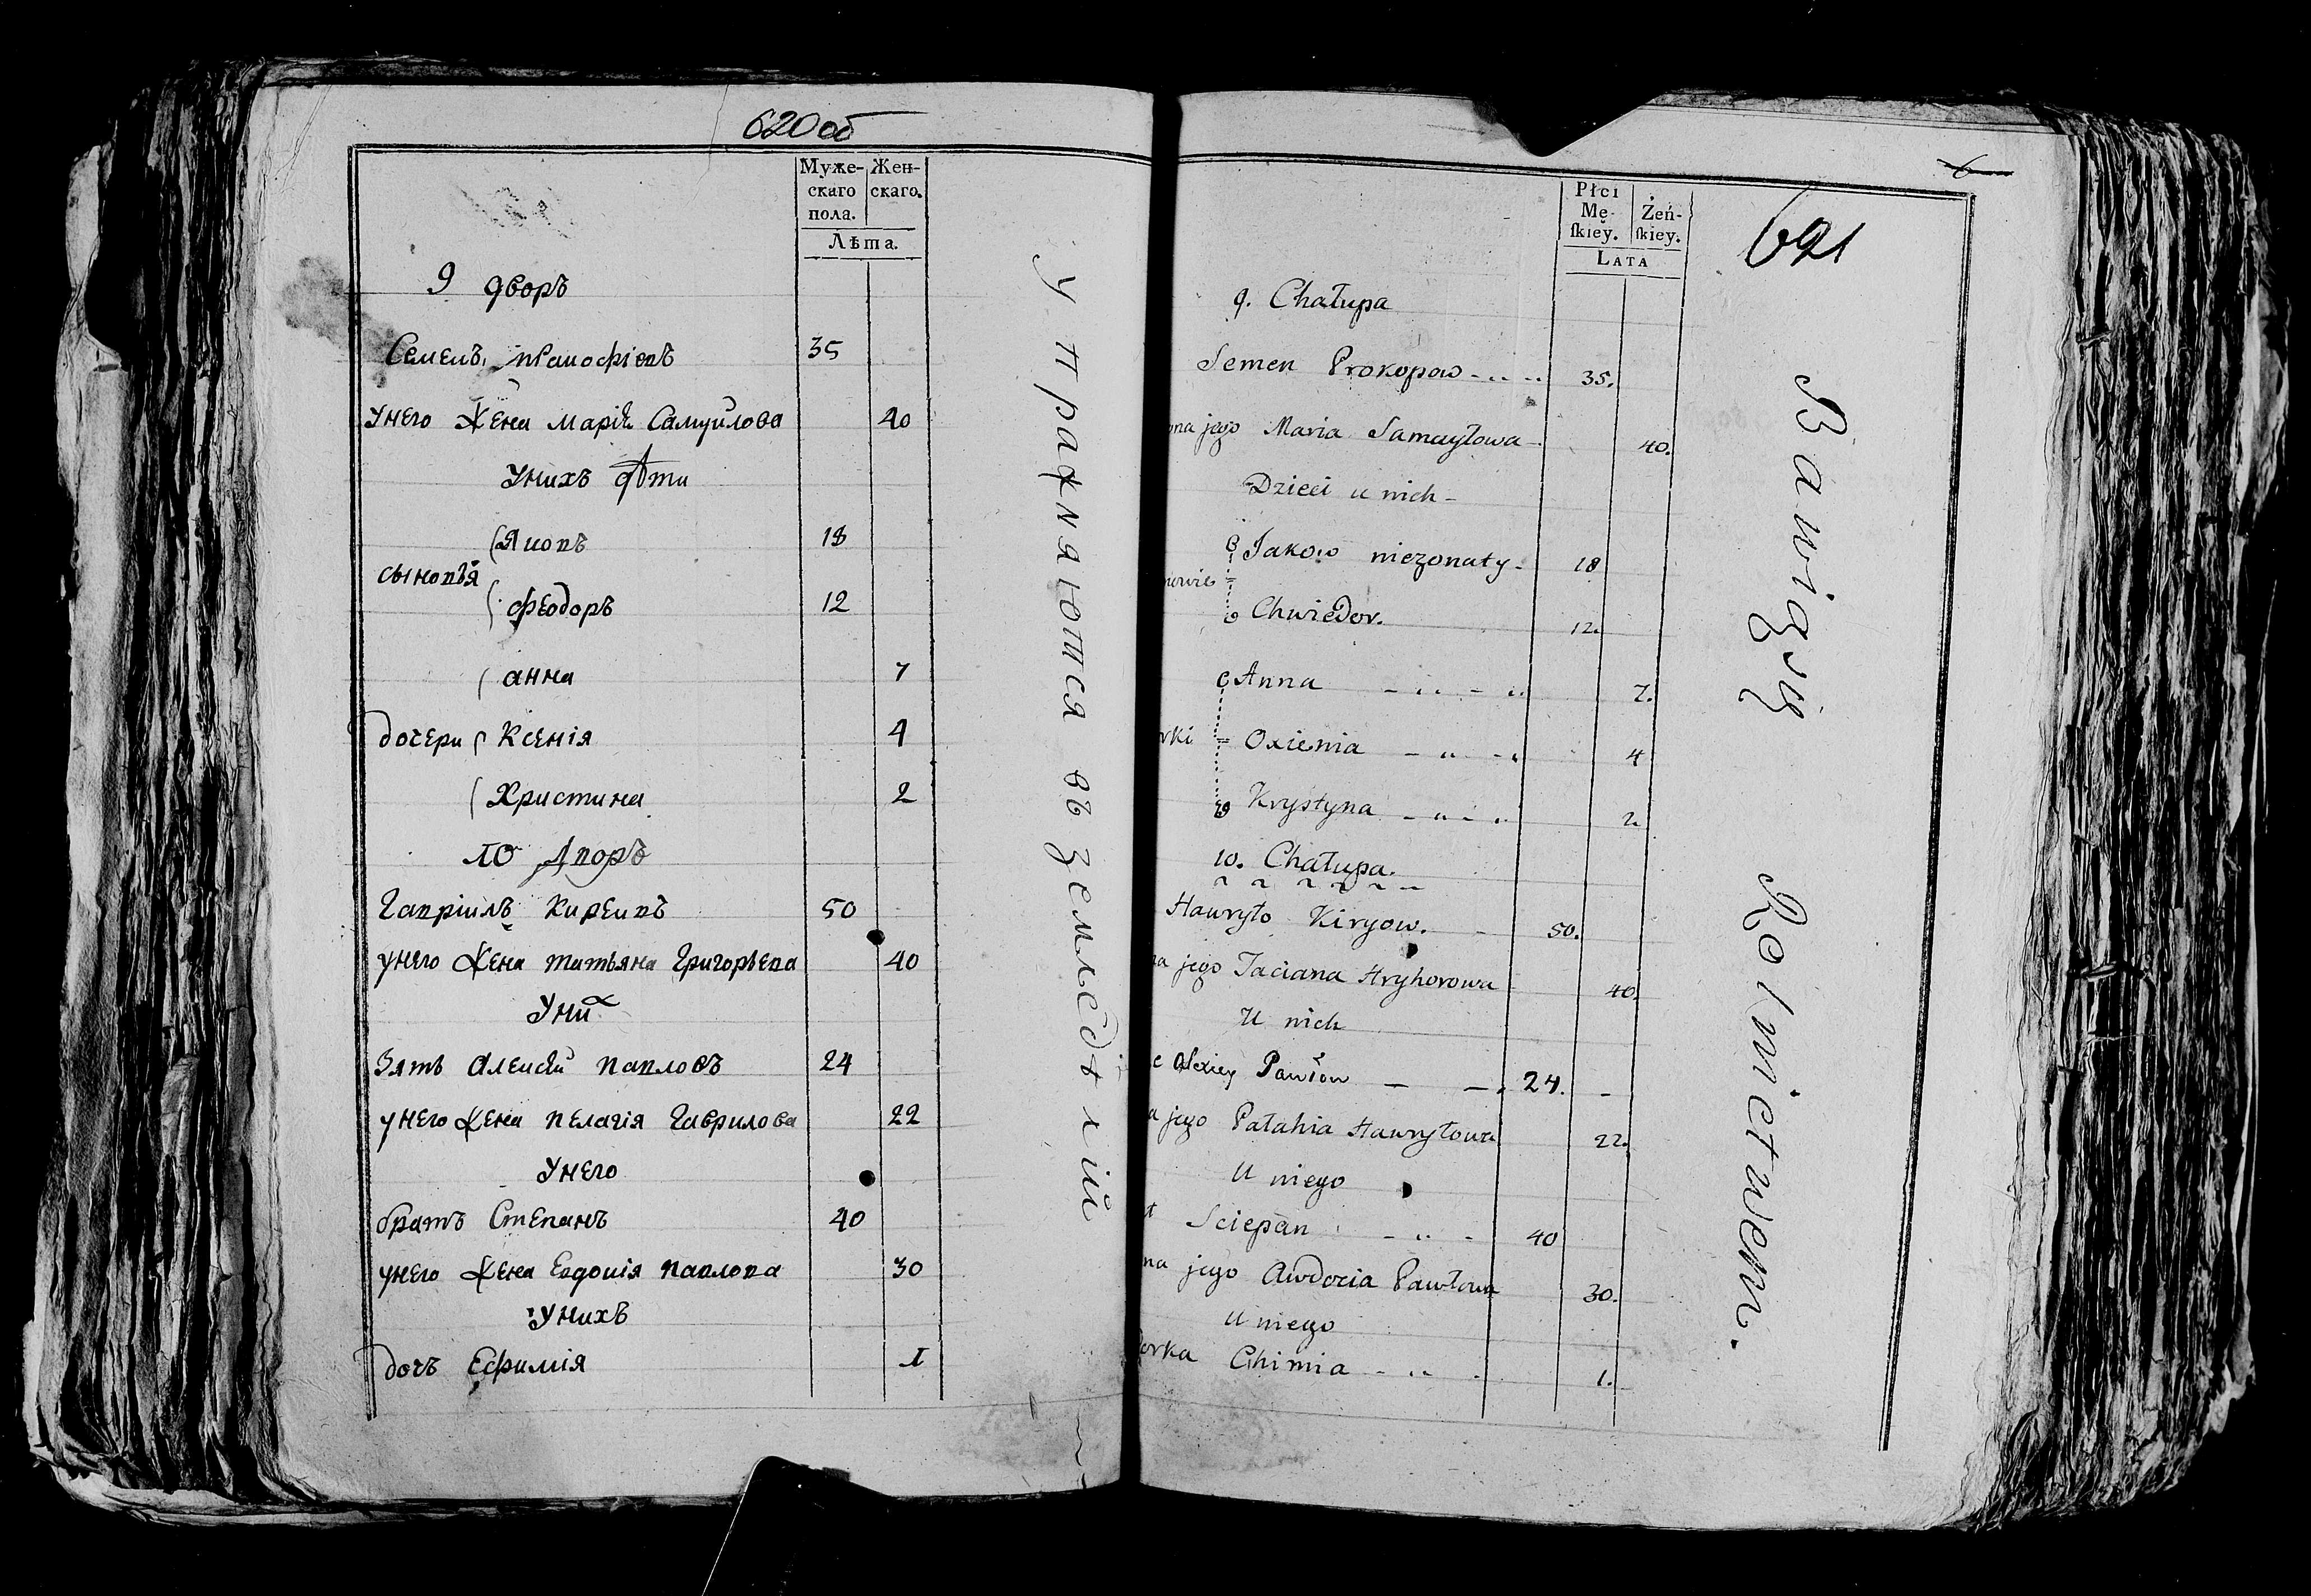 620 об
Муже-
скаго
пола.
Жен-
скаго.
Лѣта.
9 дворъ
Семенъ 35
Унего Жена Марія Самуйлова 40
Унихъ дѣти
Яковъ 18
сыновья
Феодоръ 12
анна 7
дочери Ксенія 4
Христина 2
10 Дворъ
Гавріилъ Киреивъ 50
унего Жена татьяна Григорьева 40
Уних
Зять Алексѣй Павловъ 24
унего Жена Пелагія Гаврилова 22
Унего
братъ Степанъ 40
унего Жена Евдокія Павлова 30
Унихъ
дочь Ефимія 1
Упражняются въ земледѣлій
6
621
Płci
Mę-
ſkiey.
Żeń-
ſkiey.
Lata
9. Chałupa
Semen Prokopow 35.
ona jego Maria Samuyłowa 40.
Dzieci u nich
Jakow niezonaty 18
nowie
Chwiedor. 12.
Anna 7.
rki Oxienia 4
Krystyna 2
10. Chałupa.
Hawryło Kiryow. 50.
na jego Taciana Hryhorowa 40.
U nich
c Alexiey Pawłow 24.
a jego Pałahia Hawryłowa 22.
U niego
t Sciepan 40
na jego Awdocia Pawłowa 30.
U niego
orka Chimia 1.
Bawizsię Rolnictwem.